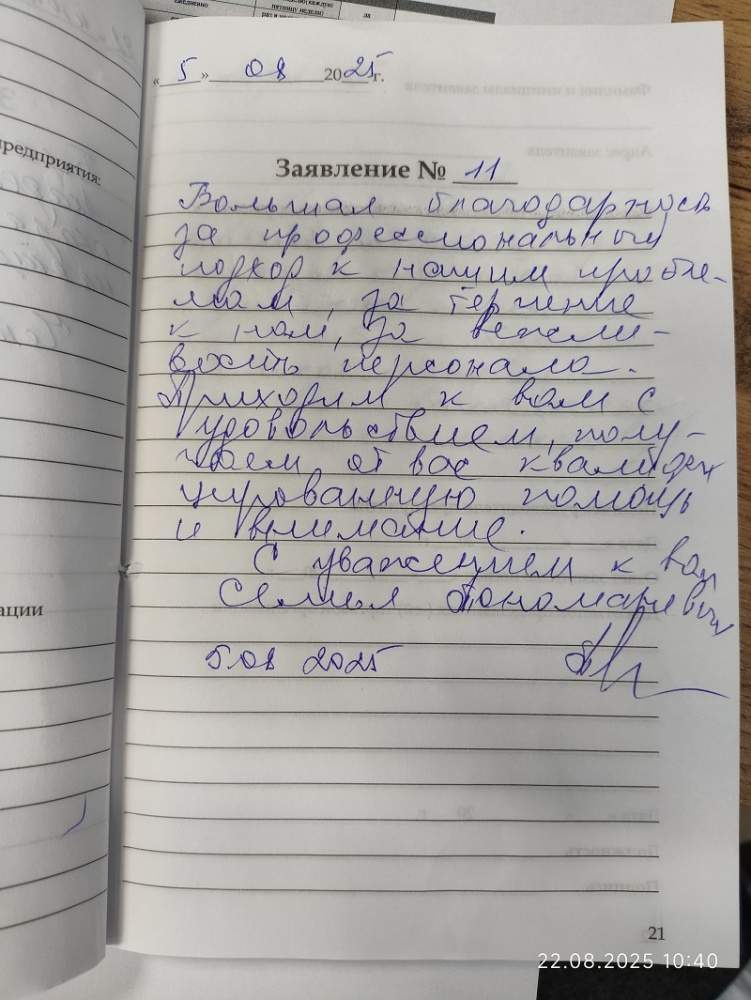 ежедневно
пятницу недели)
за
«5» 08 2025 г.
предприятия:
Заявление № 11
Большая благодарность
за профессиональный
подход к нашим пробле-
мам, за терпение
к нам, за вежли-
вость персонала.
Приходим к вам с
удовольствием, полу-
чаем от вас квалифи
цированную помощь
и внимание.
С уважением к вам
Семья
ации
5.08 2025
21
22.08.2025 10:40